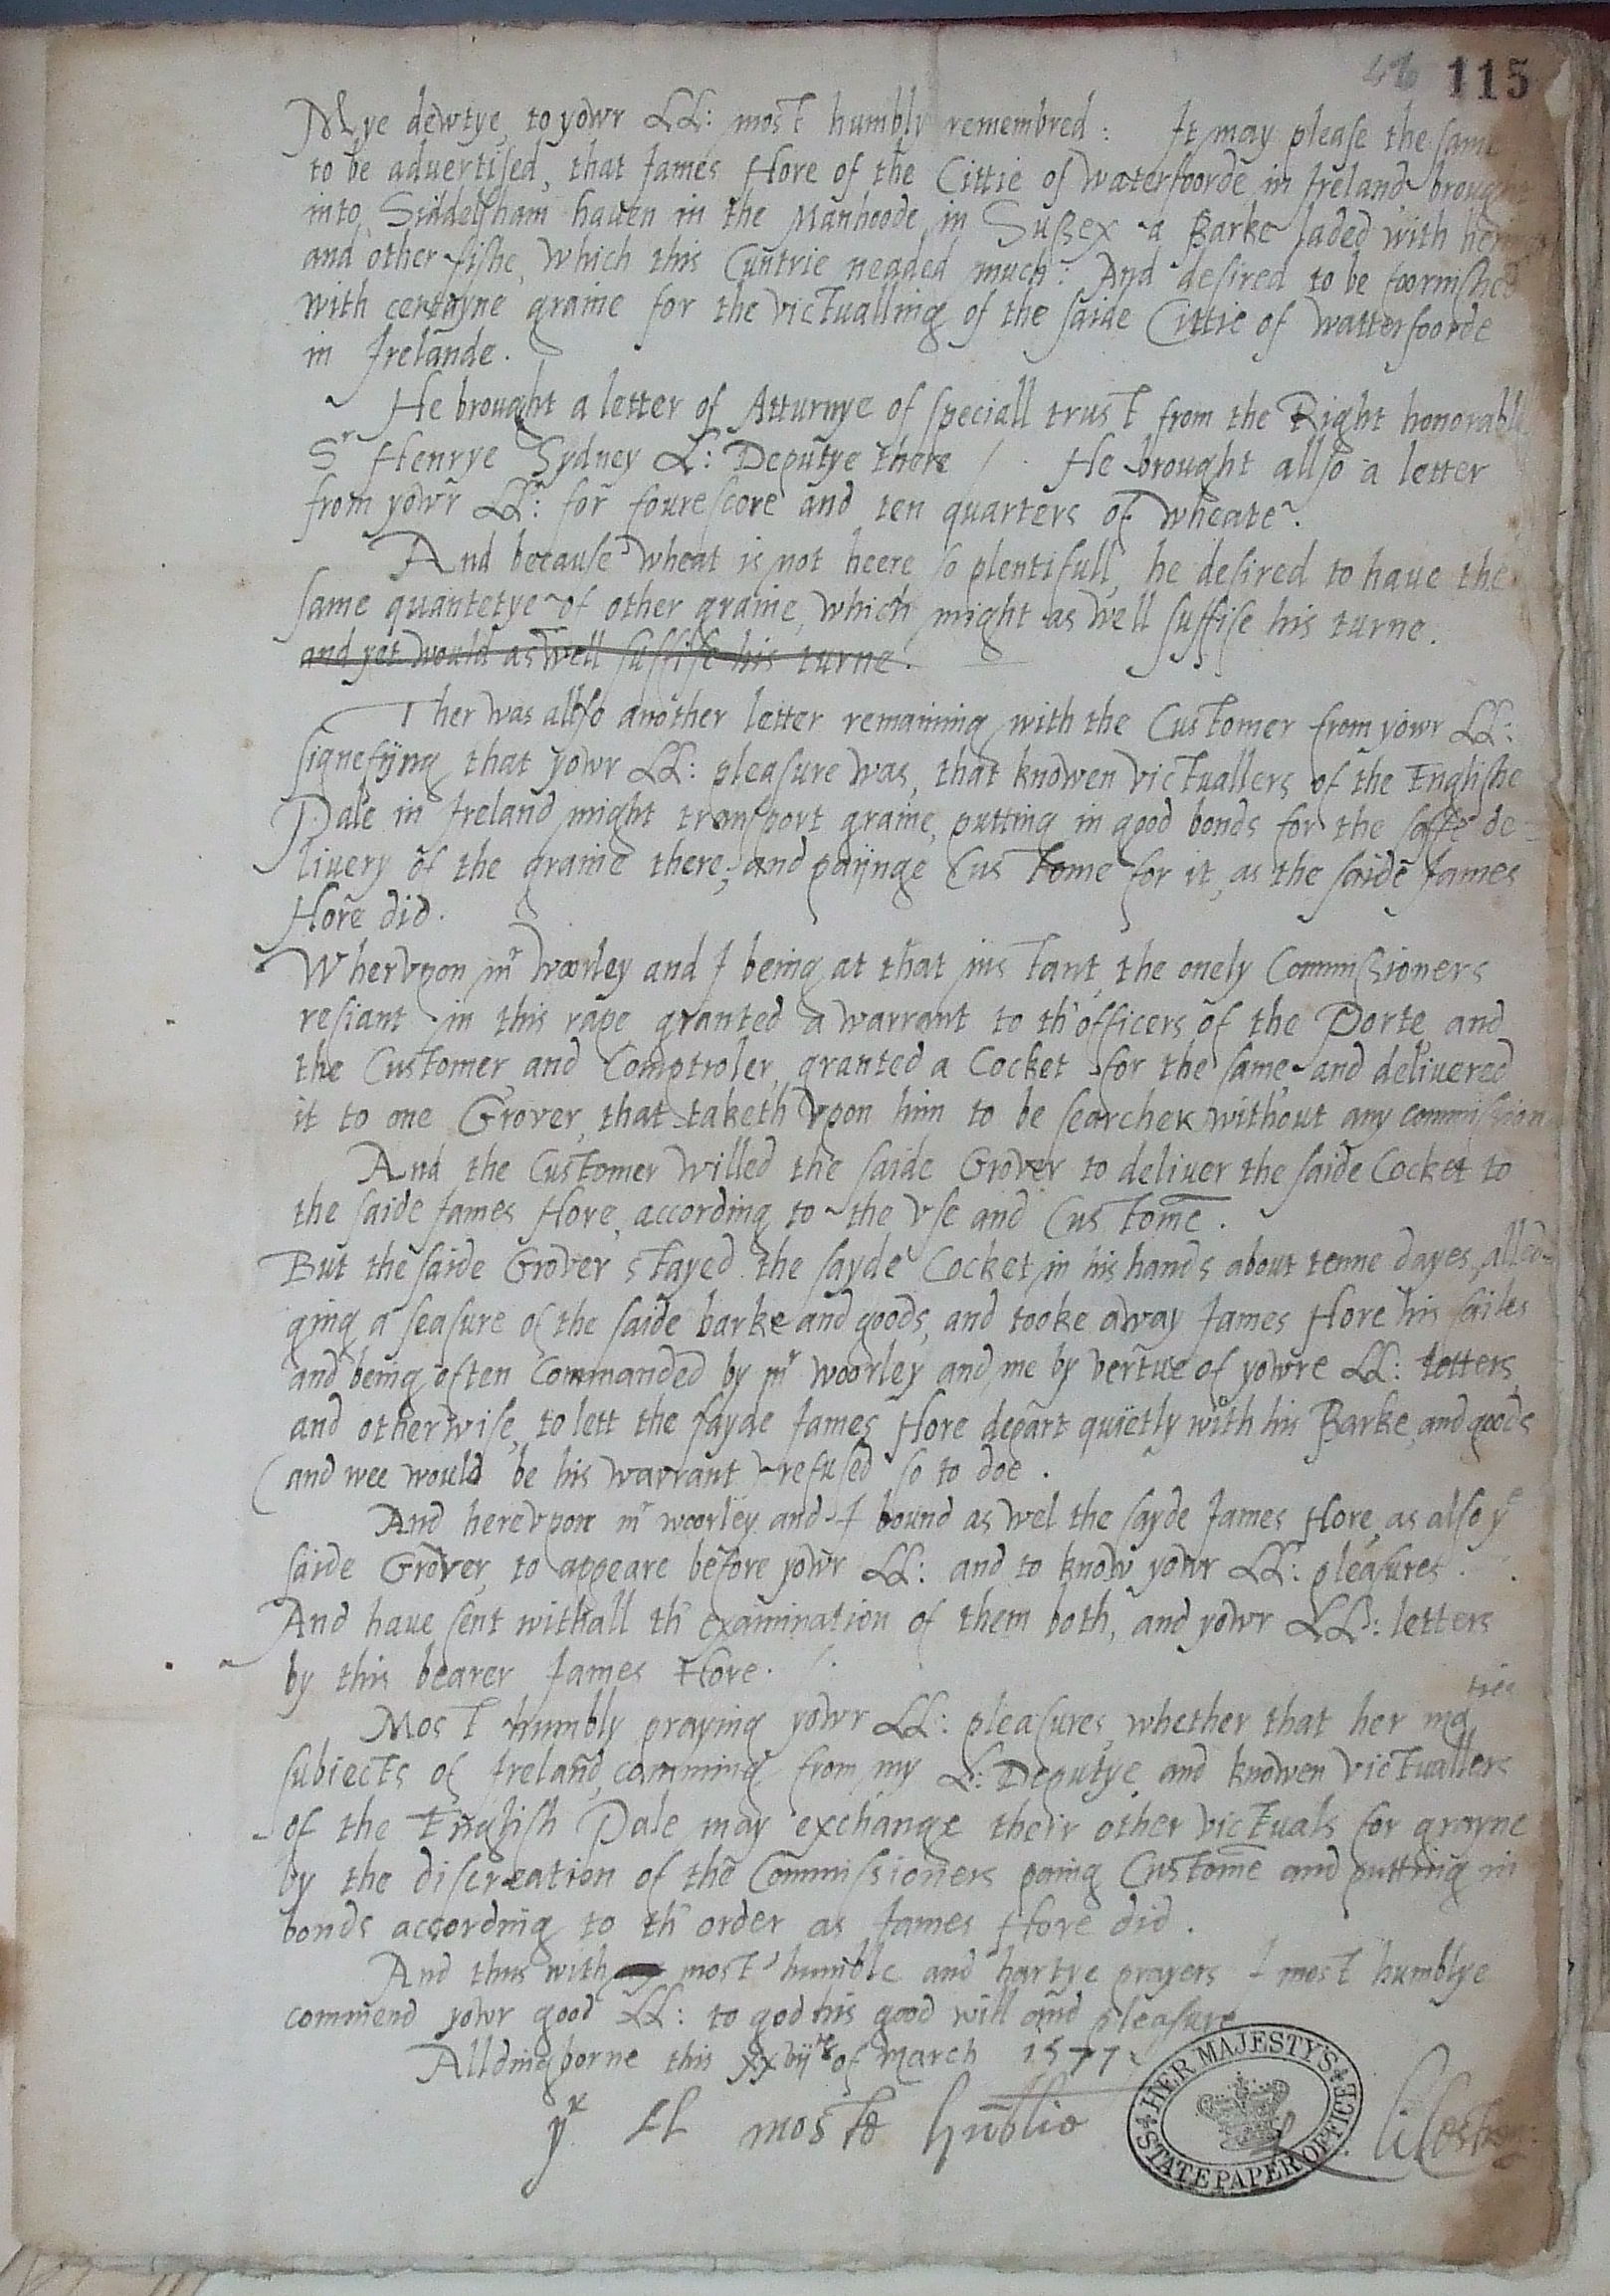 115
Mye dewtye, to yowr LL: most humbly remembred: It may please the same
to be advertised, that James Hore of the Cittie of waterfoorde in Ireland, brought
into Siddelsham haven in the Manhoode in Sussex a Barke laded with
and other fishe, which this Cuntrie neaded much: And desired to be foornished
with certayne graine for the victualling of the saide Cittie of watterfoorde
in Irelande.
He brought a letter of Atturnye of speciall trust from the Right honorable
Sr Henrye Sydney L: Deputye there /. He brought allso a letter
from yowr LL: for fourescore and ten quarters of wheate.
And because wheat is not heere so plentifull, he desired to have the
same quantetye of other graine, which might as well suffise his turne.
and yet would as well suffise his turne.
Ther was allso another letter remaining with the Customer from yowr LL:
signefijng that yowr LL: pleasure was, that knowen victuallers of the Englishe
Pale in Ireland might transport graine, putting in good bonds for the saffe de=
livery of the graine there; and paijnge Custome for it, as the saide James
Hore did.
Whervpon mr woorley and I being at that instant, the onely Commissioners
resiant in this rape granted a warrant to th'officers of the Porte and
the Customer and Comptroler, granted a Cocket for the same and delivered
it to one Grover, that taketh vpon him to be searcher without any commission
And the Customer willed the saide Grover to deliver the saide Cocket to
the saide James Hore, according to the vse and Custome.
But the saide Grover stayed the sayde Cocket in his hands about tenne dayes, alled-
ging a seasure of the saide barke and goods, and tooke away James Hore his sailes
and being often Commanded by mr woorley and me by vertue of yowre LL: letters,
and otherwise, to lett the sayde James Hore depart quietly with his Barke, and goods
(and wee would be his warrant) refused so to doe.
And herevpon mr woorley and I bound as wel the sayde James Hore, as also ye
saide Grover, to appeare before yowr LL: and to know yowr LL: pleasures.
And have sent withall th'examination of them both, and yowr LL: letters
by this bearer James Hore. /.
Most humbly praying yowr LL: pleasures, whether that her maties
subiects of Ireland, comming from my L: Deputye and knowen victuallers
of the English Pale may exchange their other victuals for grayne
by the discreation of the Commissioners paing Custome and putting in
bonds according to th'order as James Hore did.
And thus with most humble and hartye prayers I most humblye
commend yowr good LL: to god his good will and pleasure
Alldingborne this xxvijth of March 1577.
yr LL moste humblie
HER MAJESTY'S STATE PAPER OFFICE